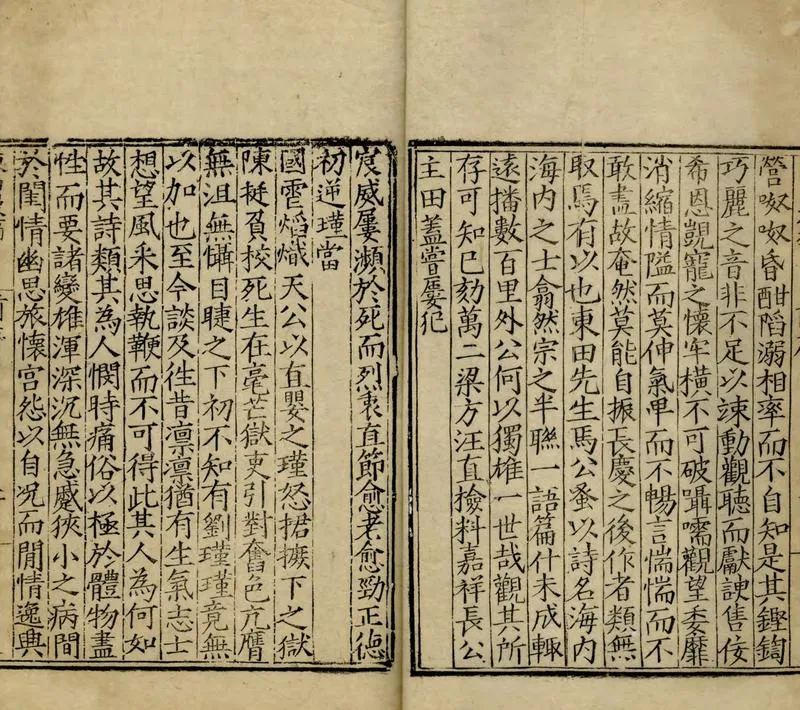 營呶呶昏酣陷溺相率而不自知是其鏗鍧
巧麗之音非不足以竦動觀聽而獻諛售佞
希恩覬寵之懷牢橫不可破躡嚅觀望委靡
消縮情隘而莫伸氣卑而不暢言惴惴而不
敢盡故奄然莫能自振長慶之後作者類無
取焉有以也東田先生馬公蚤以詩名海內
海內之士翕然宗之半聯一語篇什未成輒
遠播數百里外公何以獨雄一世哉觀其所
存可知已劾萬二梁方汪直撿料嘉祥長公
主田蓋嘗屢犯
宸威屢瀕於死而烈衷直節愈老愈勁正德
初逆瑾當
國雹焰熾天公以直嬰之瑾怒捃摭下之獄
陳挺貧校死生在毫芒獄吏引對奮色亢膺
無沮無懾目睫之下初不知有劉瑾瑾竟無
以加也至今談及徃昔凛凛猶有生氣志士
想望風采思執鞭而不可得此其人為何如
故其詩類其為人憫時痛俗以極於體物盡
性而要諸變雄渾深沉無急蹙狹小之病間
於閨情幽思旅懷宮怨以自况而閒情逸興